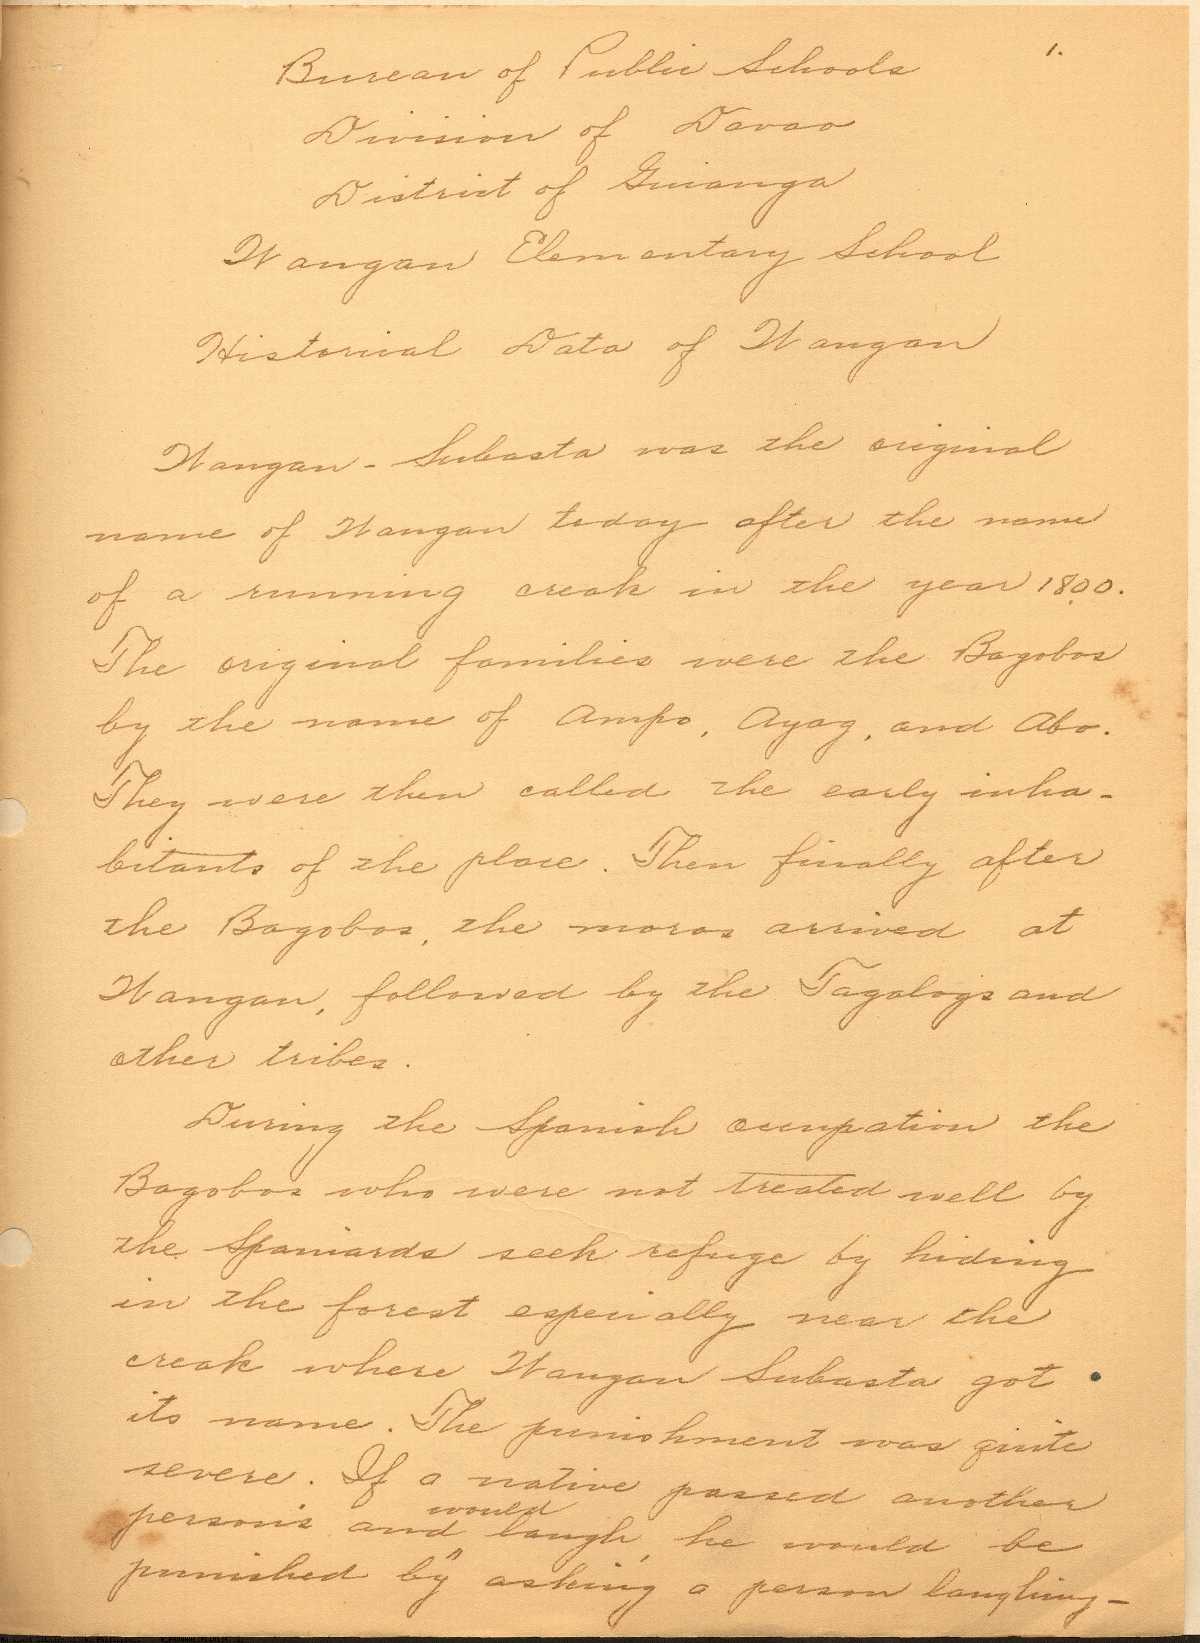 1.
Bureau of Public Schools
Division of Davao
District of Guianga
Wangan Elementary School
Historical Data of Wangan
Wangan - Subasta was the original
name of Wangan today after the name
of a running creak in the year 1800.
The original families were the Bagobos
by the name of Ampo, Ayag, and Abo.
They were then called the early inha-
bitants of the place. Then finally after
the Bagobos, the moros arrived at
Wangan, followed by the Tagalogs and
other tribes.
During the Spanish occupation the
Bagobos who were not treated well by
the Spaniards seek refuge by hiding
in the forest especially near the
creak where Wangan Subasta got
its name. The punishment was quite
severe. If a native passed another
would
persons and laugh, he would be
punished by asking a person laughing-